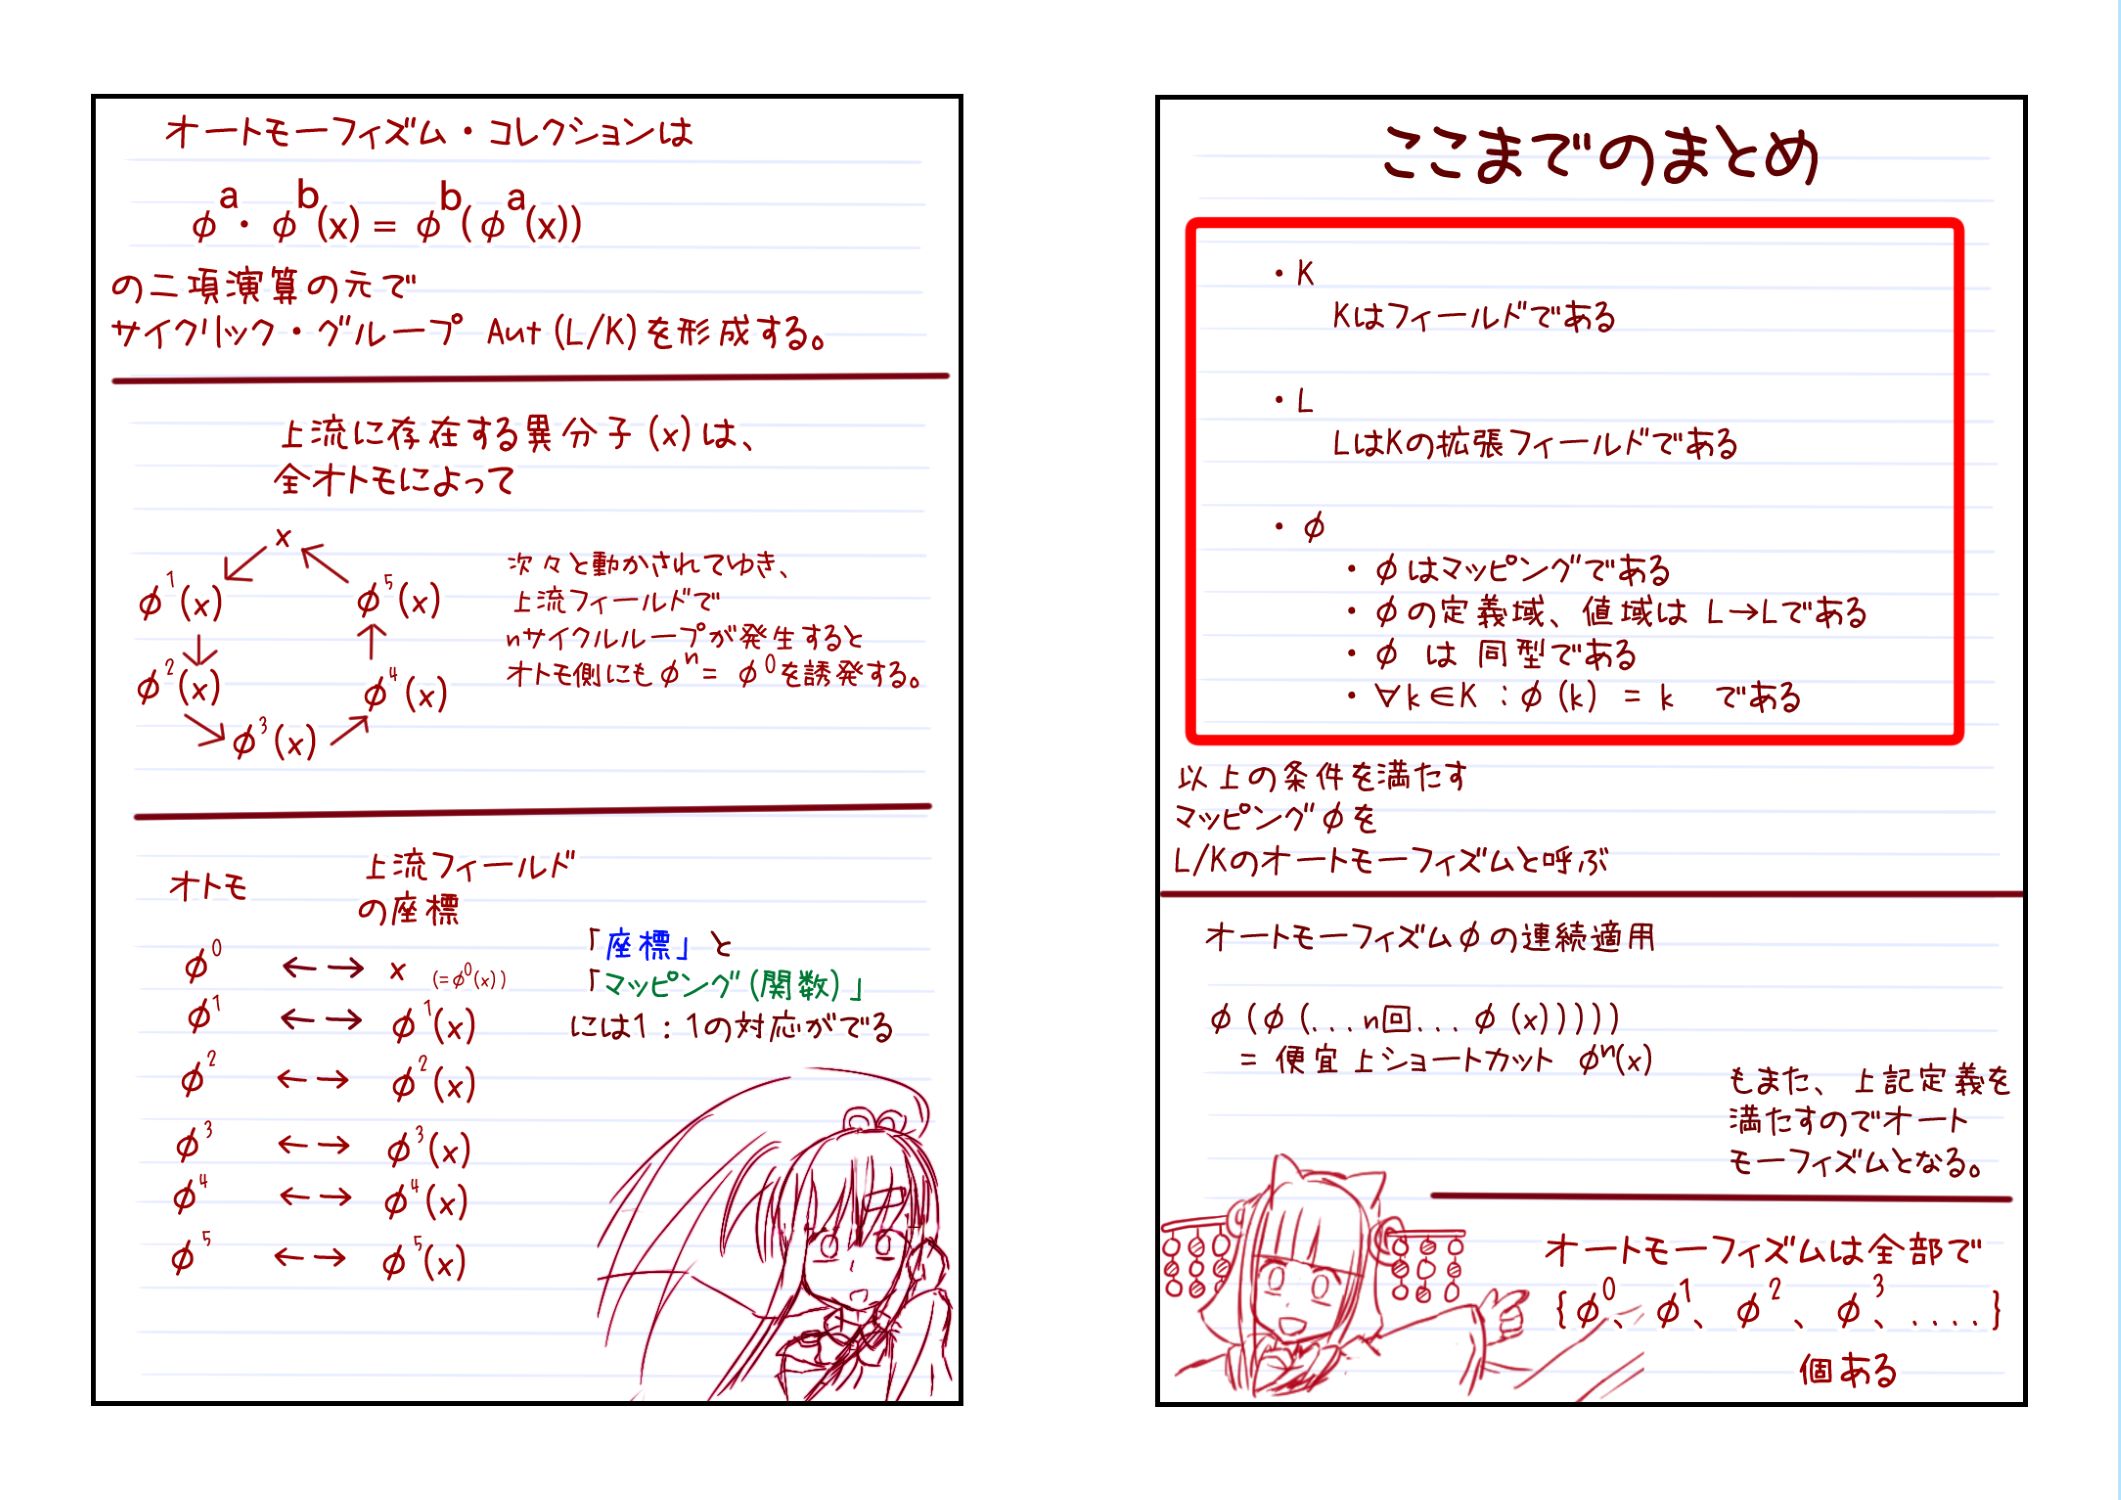 ここまでのまとめ
・K
Kはフィールドである
・L
LはKの拡張フィールドである
・φ
・φはマッピングである
・φの定義域、値域は L→Lである
・φ は 同型である
・∀k∈K：φ(k) = k である
以上の条件を満たす
マッピングφを
L/Kのオートモーフィズムと呼ぶ
オートモーフィズムφの連続適用
φ(φ(...n回...φ(x)))))
= 便宜上ショートカット φⁿ(x)
もまた、上記定義を
満たすのでオート
モーフィズムとなる。
オートモーフィズムは全部で
{φ⁰、φ¹、φ²、φ³、....}
個ある
オートモーフィズム・コレクションは
φᵃ・φᵇ(x) = φᵇ(φᵃ(x))
の二項演算の元で
サイクリック・グループ Aut(L/K)を形成する。
上流に存在する異分子(x)は、
全オトモによって
x
φ¹(x)
φ⁵(x)
φ²(x)
φ⁴(x)
φ³(x)
次々と動かされてゆき、
上流フィールドで
nサイクルループが発生すると
オトモ側にもφⁿ= φ⁰を誘発する。
オトモ
上流フィールド
の座標
φ⁰ ←→ x (=φ⁰(x))
φ¹ ←→ φ¹(x)
φ² ←→ φ²(x)
φ³ ←→ φ³(x)
φ⁴ ←→ φ⁴(x)
φ⁵ ←→ φ⁵(x)
「座標」と
「マッピング(関数)」
には1：1の対応がでる